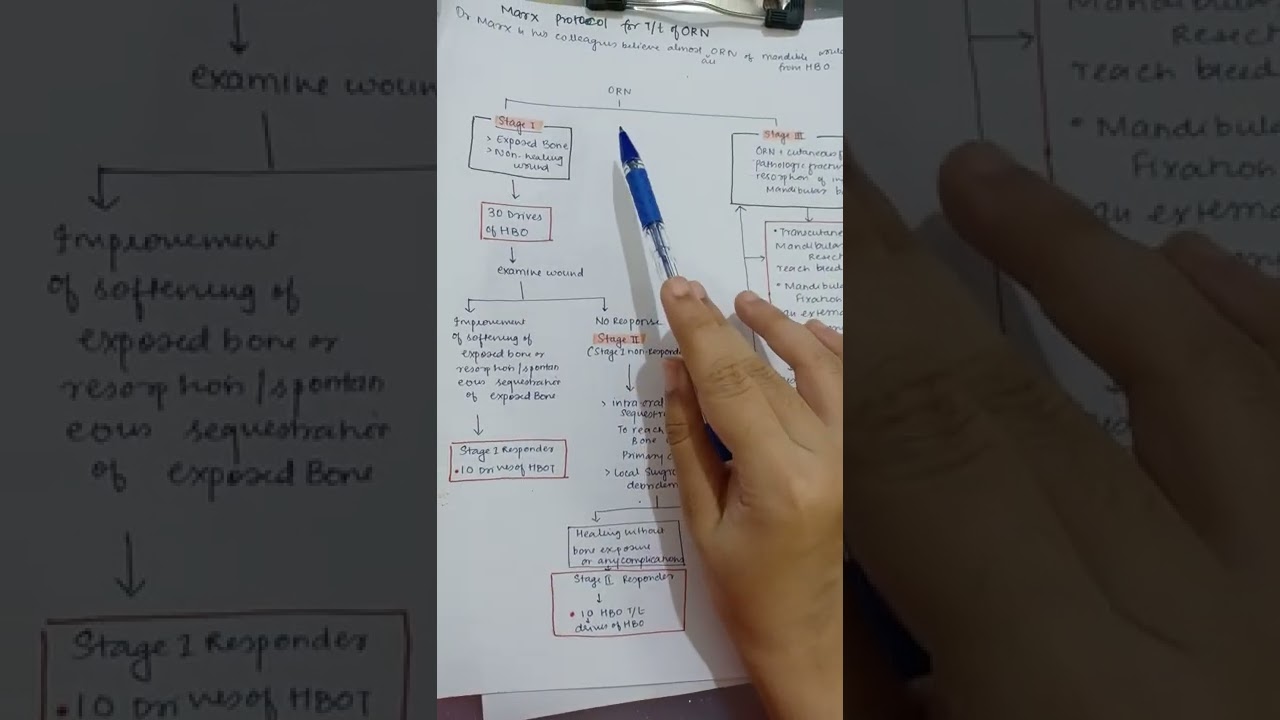 Marx protocol for T/t of ORN
Dr Marx & his colleagues believe almost all ORN of mandible
from HBO
ORN
Stage I
> Exposed Bone
> Non-healing
wound
30 Drives
of HBO
examine wound
Improvement
of softening of
exposed bone or
resorphion/spontan
eous sequestration
of exposed Bone
Stage I Responder
• 10 Drives of HBOT
No Response
Stage II
(Stage I non-responde
> intra-oral
sequestr
To reach
Bone
Primary
> Local Surgic
debridem
Healing without
bone exposure
or any complications
Stage II Responder
• 10 HBO T/t
drives of HBO
Stage III
ORN + cutaneous f
pathologic fractur
resorption of in
Mandibular b
• Transcutane
Mandibular
Resect
reach bleed
• Mandibula
Fixation
an externa
examine woun
Improvement
of softening of
exposed bone or
resorphion/spontan
eous sequestration
of exposed Bone
Stage I Responder
• 10 Drives of HBOT
Mandibular
Resect
reach bleed
• Mandibula
Fixation
an externa